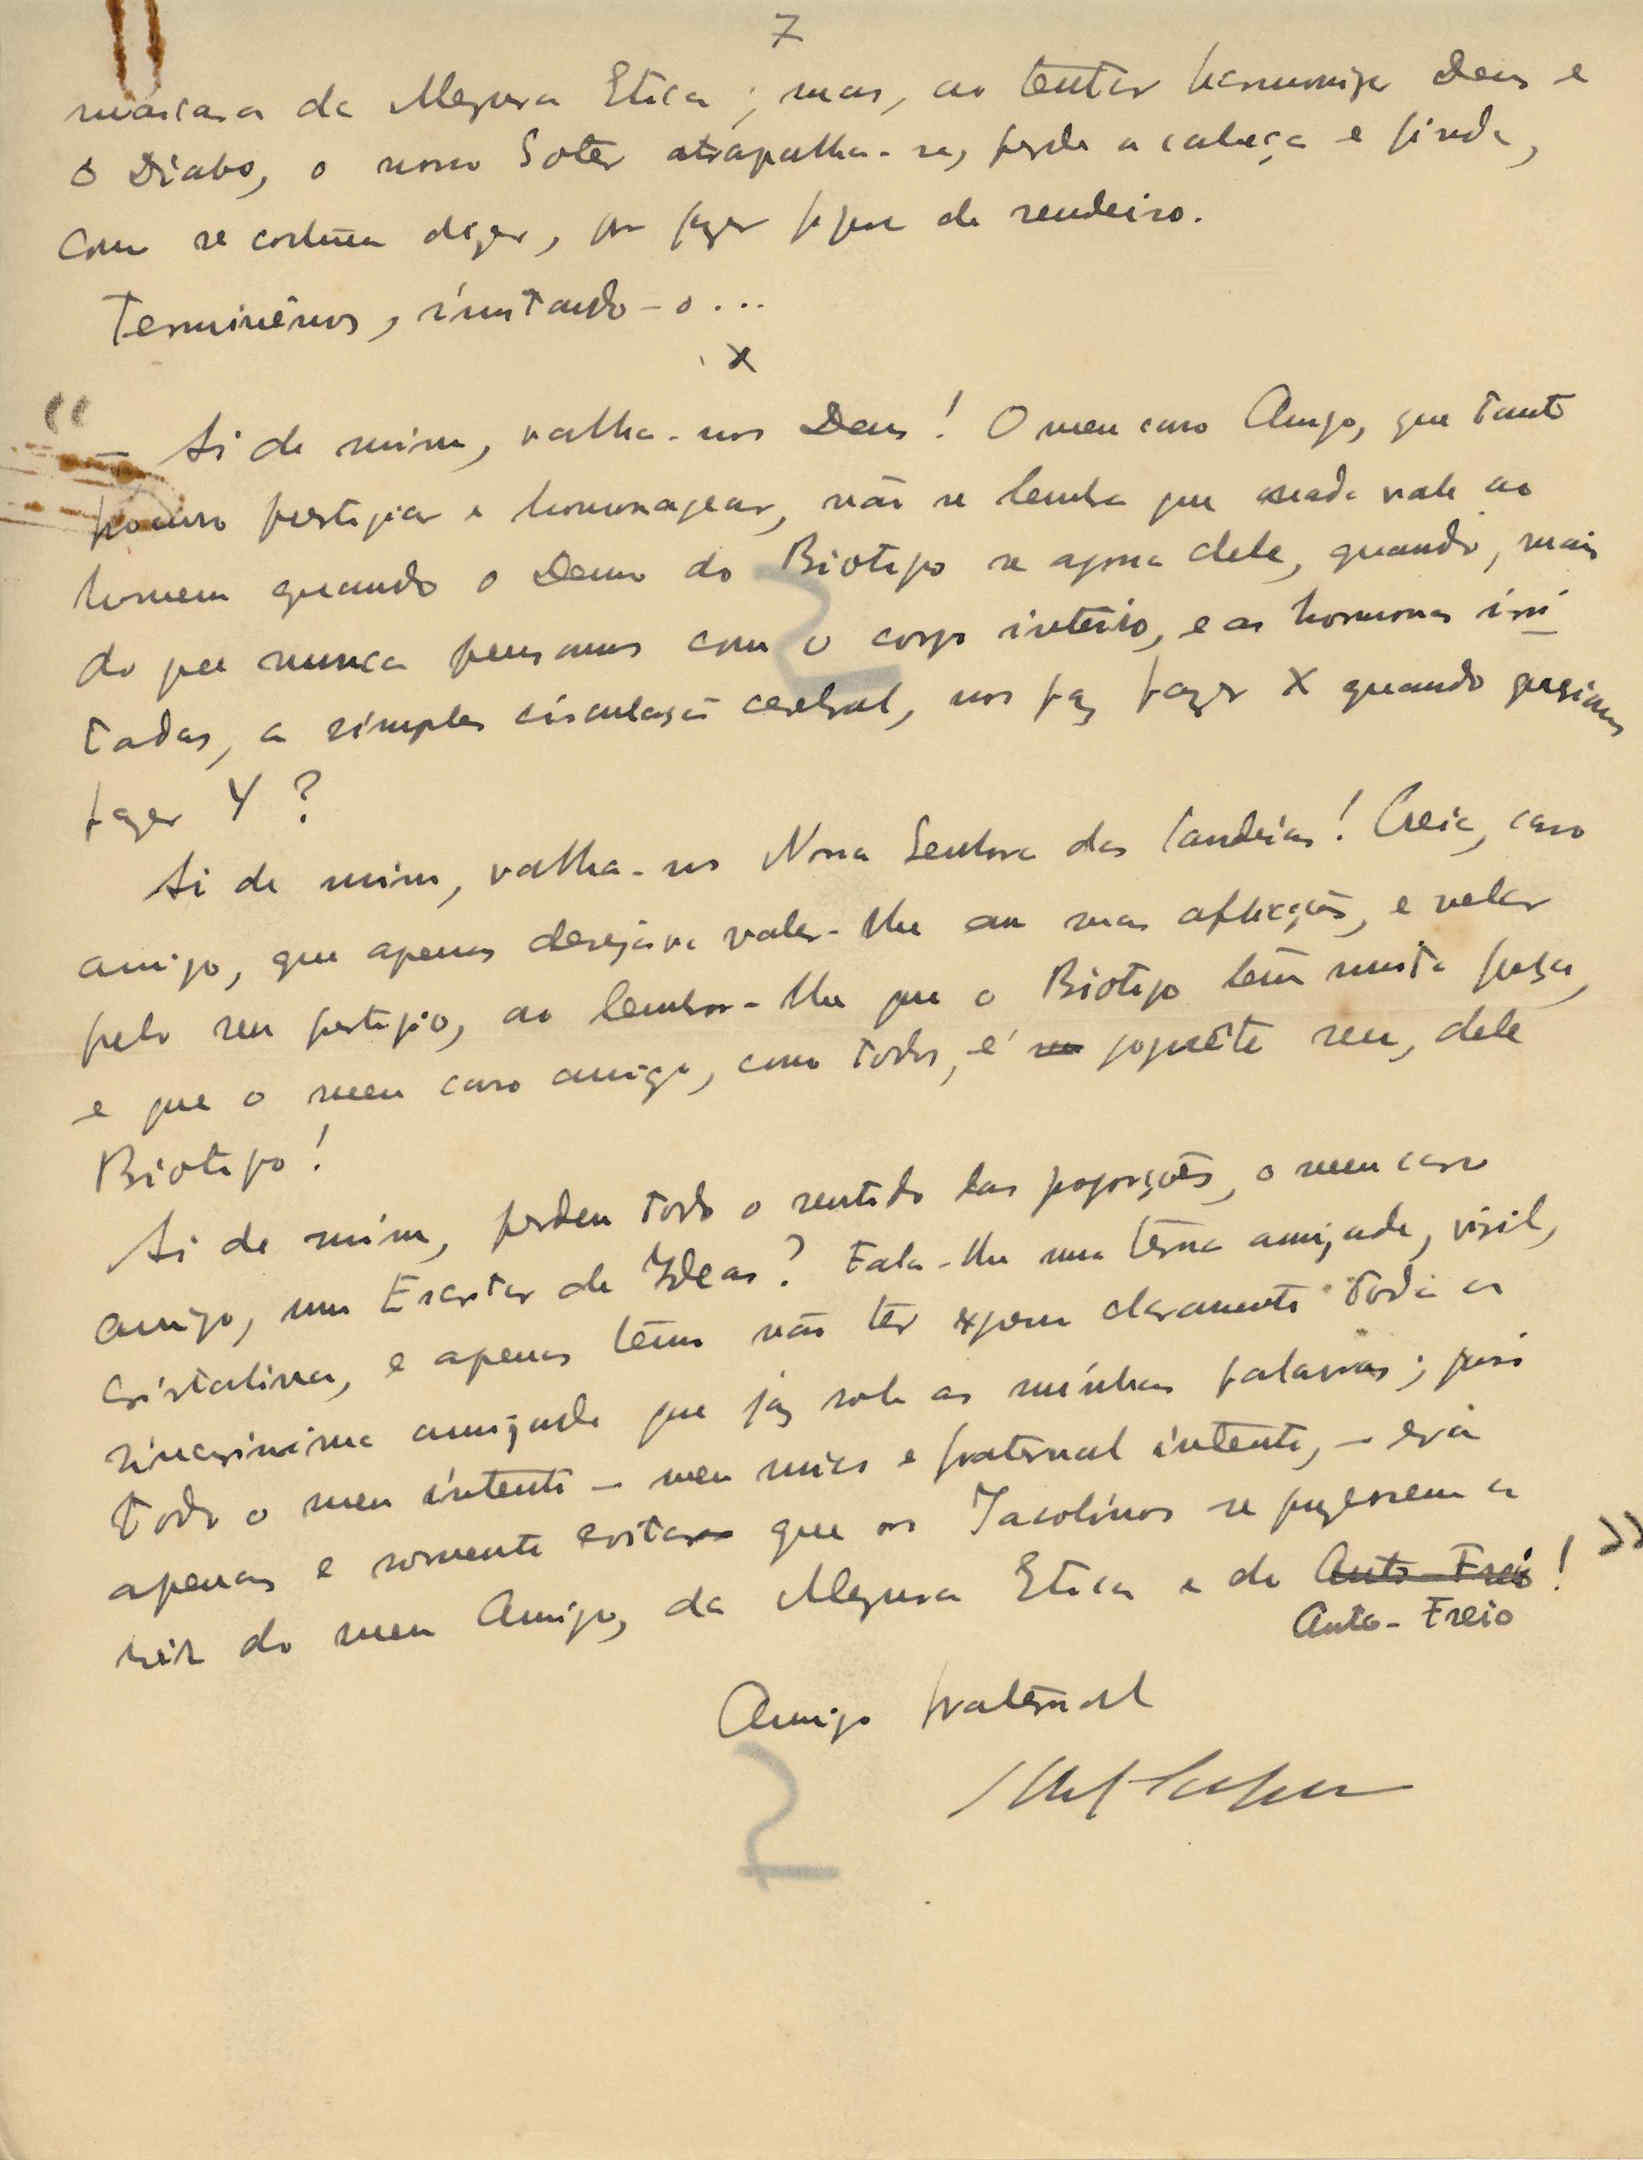 7
máscara da Megera Etica; mas, ao tentar harmonizar Deus e
o Diabo, o nosso Soter atrapalha-se, perde a cabeça e finda,
como se costuma dizer, por fazer figura de rendeiro.
Terminêmos, imitando-o...
x
"— Ai de mim, valha-nos Deus! O meu caro Amigo, que tanto
procuro prestigiar e homenagear, não se lembra que nada vale ao
homem quando o Demo do Biotipo se apossa dele, quando, mais
do que nunca pensamos com o corpo inteiro, e as hormonas irri
tadas, a simples circulação cerebral, nos faz fazer X quando queriamos
fazer Y?
Ai de mim, valha-nos Nossa Senhora das Candeias! Creia, caro
amigo, que apenas desejava valer-lhe em suas aflições, e velar
pelo seu prestigio, ao lembrar-lhe que o Biotipo tem muita força,
e que o meu caro amigo, como todos, é joguête seu, dele
Biotipo!
Ai de mim, perdeu todo o sentido das proporções, o meu caro
amigo, um Escritor de Ideas? Fala-lhe uma terna amizade, viril,
cristalina, e apenas temo não ter exposto claramente toda a
sincerissima amizade que jaz sob as minhas palavras; pois
todo o meu intento — meu unico e fraternal intento, — era
apenas e somente evitar que os Jacobinos se puzessem a
rir do meu Amigo, da Megera Etica e do Auto-Freio!»
Auto-Freio
Amigo fraternal